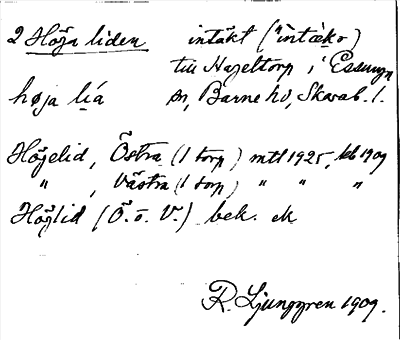 2 Höja liden intäkt ("intækɷ)
till Hazeltorp i Essunga
høja lia sn, Barne hd, Skarab. l.
Höjelid, Östra (1 torp) mtl 1925, kb 1909
" , Västra (1 torp) " " "
Höglid (Ö. o. V.) bek. ek
R. Ljunggren 1909.